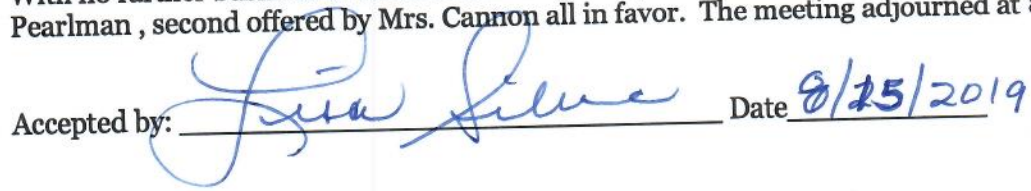 With no further
Pearlman , second offered by Mrs. Cannon all in favor. The meeting adjourned at
Accepted by: Lisa Silva Date 8/15/2019